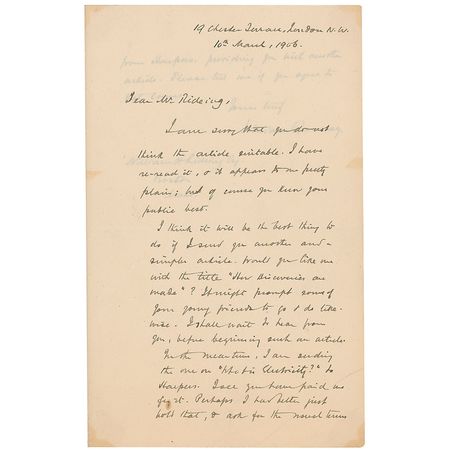 19 Chester Terrace, London N.W.
10th March, 1906.
Dear Mr Rideing,
I am sorry that you do not
think the article suitable. I have
re-read it, & it appears to me pretty
plain; but of course you know your
public best.
I think it will be the best thing to
do if I send you another and
simpler article. Would you like me
with the title "How Discoveries are
made"? It might prompt some of
your young friends to go & do like-
wise. I shall wait to hear from
you, before beginning such an article.
In the meantime, I am sending
the one on "What is Electricity?" to
Harpers. I see you have paid me
for it. Perhaps I had better just
hold that, & ask for the usual terms